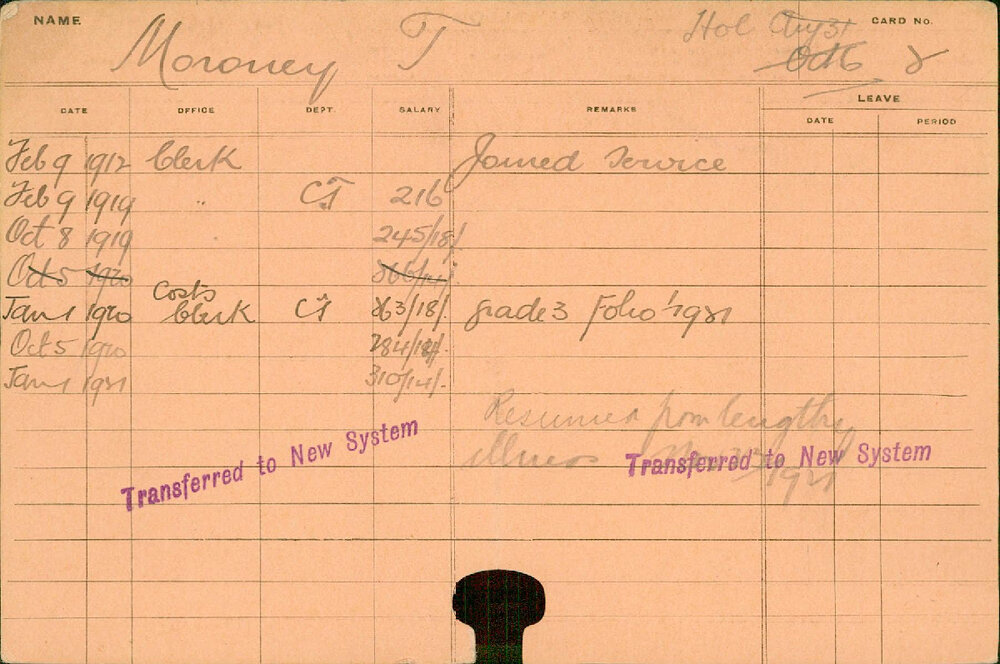 NAME Moroney T Hol Aug 31 CARD No.
Oct 6 2
DATE OFFICE DEPT. SALARY REMARKS LEAVE
DATE PERIOD
Feb 9 1912 Clerk Joined Service
Feb 9 1919 " CT 216
Oct 8 1919 245/18/
Oct 5 1920
Jan 1 1920 Costs Clerk CT 263/18/. grade 3 Folio '1921
Oct 5 1920 284/18/.
Jan 1 1921 310/14/.
Resumed from lengthy
illness 1921
Transferred to New System
Transferred to New System